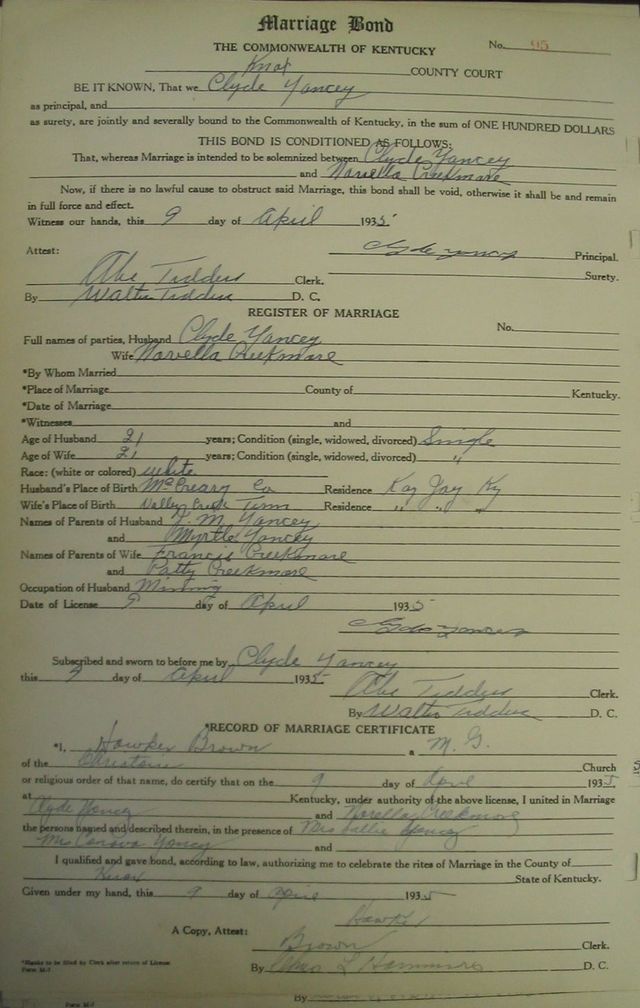 Marriage Bond
THE COMMONWEALTH OF KENTUCKY
No. 95
Knox COUNTY COURT
BE IT KNOWN, That we Clyde Yancey
as principal, and
as surety, are jointly and severally bound to the Commonwealth of Kentucky, in the sum of ONE HUNDRED DOLLARS
THIS BOND IS CONDITIONED AS FOLLOWS:
That, whereas Marriage is intended to be solemnized between Clyde Yancey
and Norvella Creekmore
Now, if there is no lawful cause to obstruct said Marriage, this bond shall be void, otherwise it shall be and remain
in full force and effect.
Witness our hands, this 9 day of April 1935
Attest: Clyde Yancey Principal.
Abe Tedders Clerk. Surety.
By Walter Tedders D. C.
REGISTER OF MARRIAGE
No.
Full names of parties, Husband Clyde Yancey
Wife Norvella Creekmore
*By Whom Married
*Place of Marriage County of Kentucky.
*Date of Marriage
*Witnesses and
Age of Husband 21 years; Condition (single, widowed, divorced) Single
Age of Wife 21 years; Condition (single, widowed, divorced) "
Race: (white or colored) white
Husband's Place of Birth McCreary Co Residence Kay Jay Ky
Wife's Place of Birth Creek Tenn Residence " " "
Names of Parents of Husband M. Yancey
and Myrtle Yancey
Names of Parents of Wife Francis Creekmore
and Patty Creekmore
Occupation of Husband Mining
Date of License 9 day of April 1935
Clyde Yancey
Subscribed and sworn to before me by Clyde Yancey
this 9 day of April 1935
Abe Tedders Clerk.
By Walter Tedders D. C.
*RECORD OF MARRIAGE CERTIFICATE
*I, Hawker Brown a M. G.
of the Christian Church
or religious order of that name, do certify that on the 9 day of April 1935
at Kentucky, under authority of the above license, I united in Marriage
Clyde Yancey and Norvella Creekmore
the persons named and described therein, in the presence of Mrs Sallie Yancey
Mrs Yancey and
I qualified and gave bond, according to law, authorizing me to celebrate the rites of Marriage in the County of
Knox State of Kentucky.
Given under my hand, this 9 day of April 1935
Hawker
A Copy, Attest: Brown Clerk.
*Blanks to be filled by Clerk after return of License
Form M-7
By L Hammons D. C.
Form M-7
By